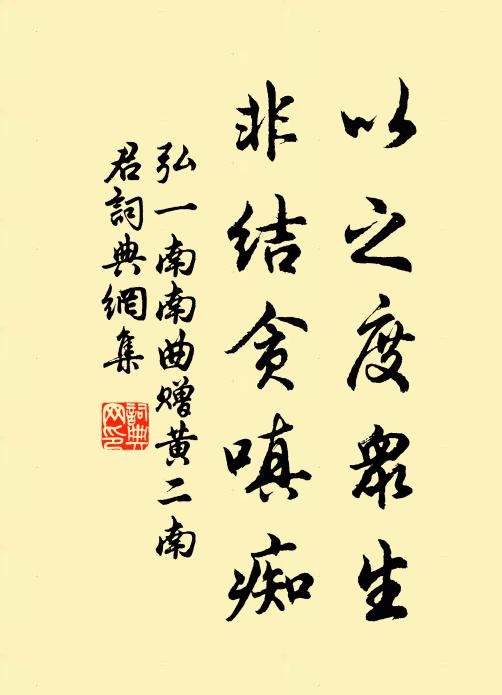 以之度眾生
非结贪嗔痴
弘一南南曲赠黄二南
君詞典網集
詞典
网印